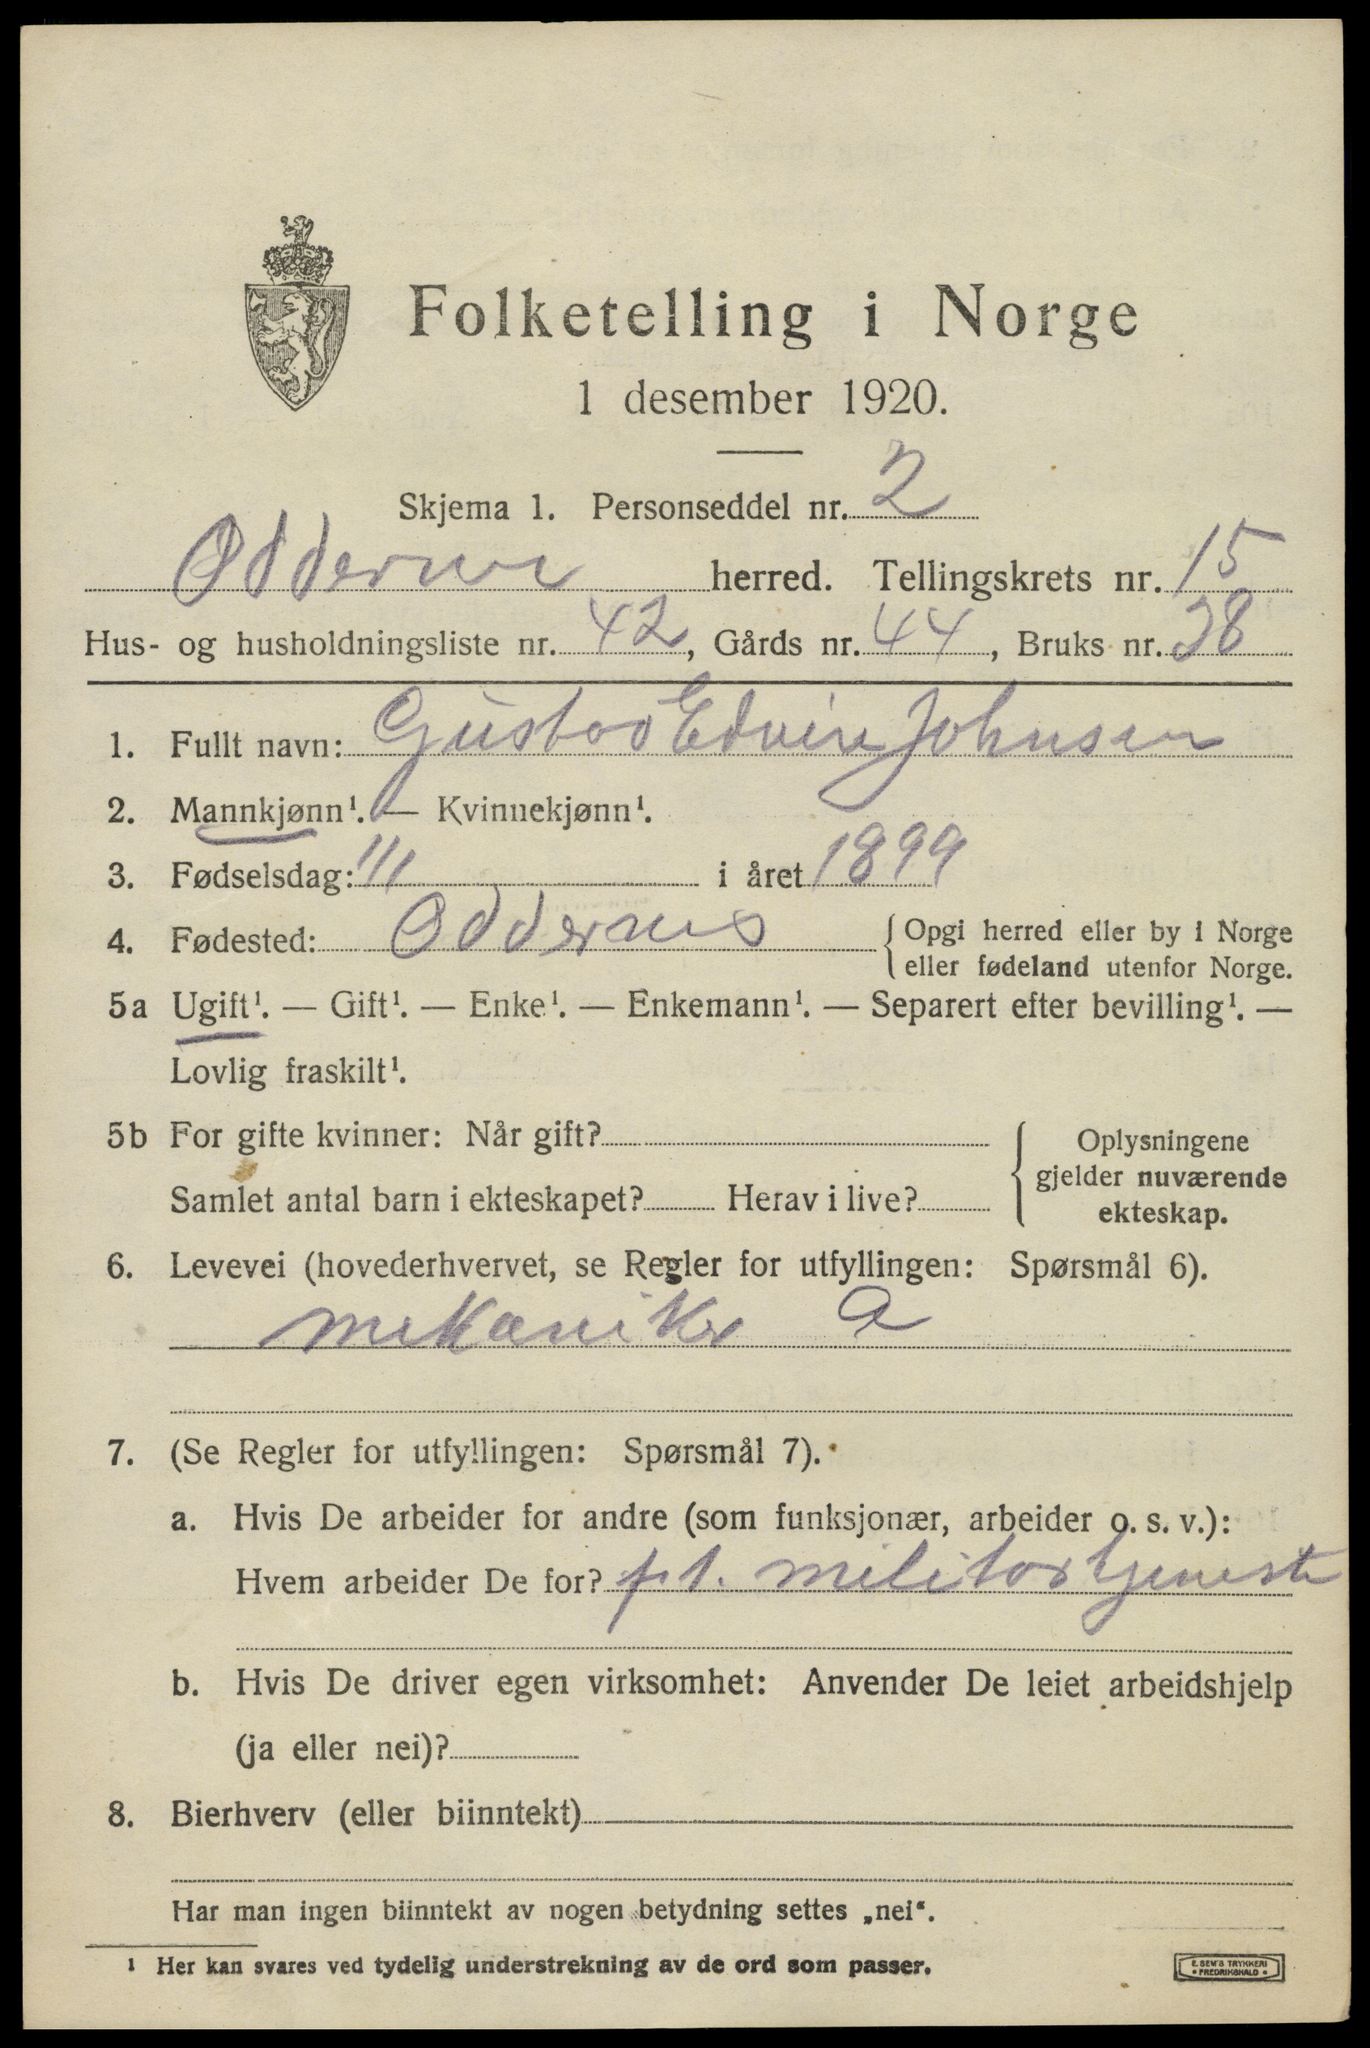 Folketelling i Norge
1 desember 1920.
Skjema 1. Personseddel nr. 2
Oddernes herred. Tellingskrets nr. 15
Hus- og husholdningsliste nr. 42, Gårds nr. 44, Bruks nr. 38
1. Fullt navn: Gustav Edvin Johnsen
2. Mannkjønn¹. — Kvinnekjønn¹.
3. Fødselsdag: 1/1 i året 1899
4. Fødested: Oddernes {Opgi herred eller by i Norge
eller fødeland utenfor Norge.
5a Ugift¹. — Gift¹. — Enke¹. — Enkemann¹. — Separert efter bevilling¹. —
Lovlig fraskilt¹.
5b For gifte kvinner: Når gift?
Samlet antal barn i ekteskapet? Herav i live?
{Oplysningene
gjelder nuværende
ekteskap.
6. Levevei (hovederhvervet, se Regler for utfyllingen: Spørsmål 6).
mekaniker a
7. (Se Regler for utfyllingen: Spørsmål 7).
a. Hvis De arbeider for andre (som funksjonær, arbeider o. s. v.):
Hvem arbeider De for? p.t. militærtjeneste
b. Hvis De driver egen virksomhet: Anvender De leiet arbeidshjelp
(ja eller nei)?
8. Bierhverv (eller biinntekt)
Har man ingen biinntekt av nogen betydning settes „nei“.
¹ Her kan svares ved tydelig understrekning av de ord som passer.
E. SEM'S TRYKKERI
• FREDRIKSHALD •